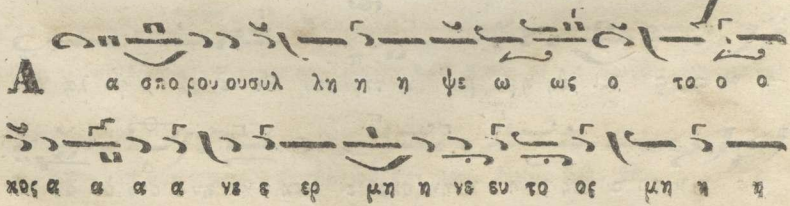 Α α σπο ρου ου συλ λη η η ψε ω ως ο το ο ο
κος α α α α νε ε ερ μη η νε ευ το ος μη η η